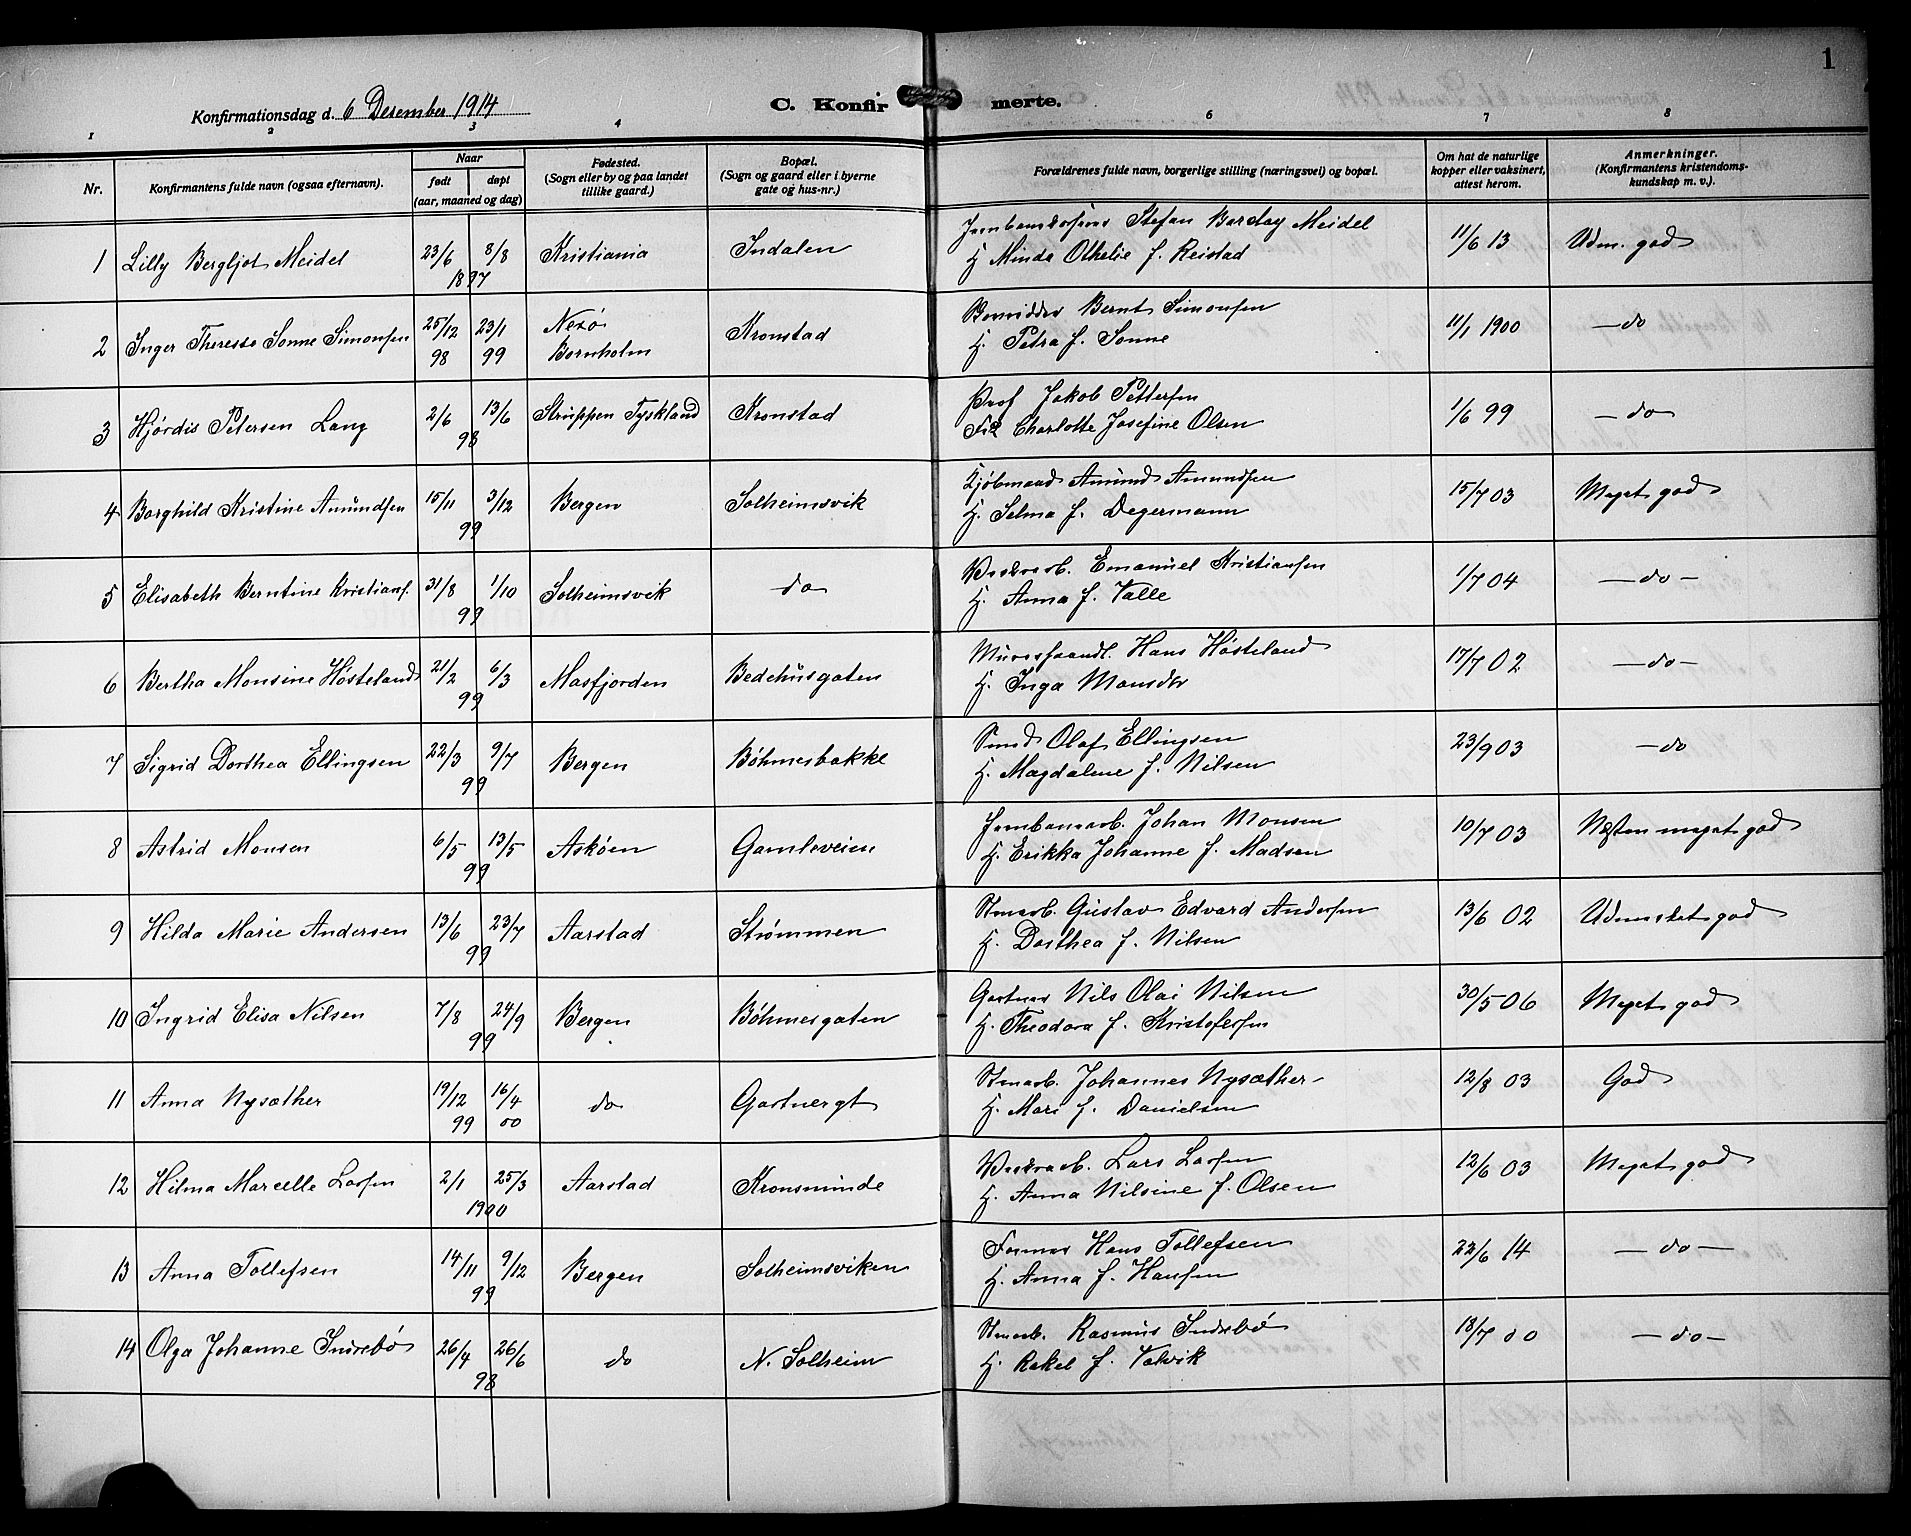 1
Konfirmationsdag d. 6 Desember 1914
C. Konfirmerte.
1 2 3 4 6 7 8
Nr. Konfirmantens fulde navn (ogsaa efternavn). Naar født døpt (aar, maaned og dag) Fødested. (Sogn eller by og paa landet tillike gaard.) Bopæl. (Sogn og gaard eller i byerne gate og hus-nr.) Forældrenes fulde navn, borgerlige stilling (næringsvei) og bopæl. Om hat de naturlige kopper eller vaksinert, attest herom. Anmerkninger. (Konfirmantens kristendoms-kundskap m. v.).
1 Lilly Bergljot Meidel 23/6 8/8 1897 Kristiania Indalen Stefan Barclay Meidel
H. Minda Othelie f. Reistad 11/6 13 Udm. god
2 Inger Therese Sonne Simonsen 25/12 98 23/1 99 Nexø Bornholm Kronstad Bernt Simonsen
H. Petra f. Sonne 11/1 1900 — do
3 Hjørdis Petersen Lang 2/6 13/6 98 Struppen Tyskland Kronstad Prof Jakob Pettersen
Frk Charlotte Josefine Olsen 1/6 99 — do
4 Borghild Kristine Amundsen 15/11 3/12 99 Bergen Solheimsvik Kjøbmand Amund Amundsen
H. Selma f. Degermann 15/7 03 Meget god
5 Elisabeth Berntine Kristians. 31/8 1/10 99 Solheimsvik do Verksarb. Emanuel Kristiansen
H. Anna f. Valle 1/7 04 — do —
6 Bertha Monsine Høsteland 21/2 6/3 99 Masfjorden Bedehusgaten Hans Høsteland
H. Inga Monsdtr 17/7 02 — do —
7 Sigrid Dorthea Ellingsen 22/3 9/7 99 Bergen Bøhmesbakke Smed Olaf Ellingsen
H. Magdalene f. Nilsen 23/9 03 — do
8 Astrid Monsen 6/5 13/5 99 Askøen Gamleveien Jernbanearb. Johan Monsen
H. Erikka Johanne f. Madsen 10/7 03 Næsten meget god
9 Hilda Marie Andersen 13/6 23/7 99 Aarstad Strømmen Stenarb. Gustav Edvard Andersen
H. Dorthea f. Nilsen 13/6 02 Udmerket god
10 Ingrid Elisa Nilsen 7/8 24/9 99 Bergen Bøhmesgaten Gartner Nils Olai Nilsen
H. Theodora f. Kristofersen 30/5 06 Meget god
11 Anna Nysæther 19/12 99 16/4 00 do Gartnergt Stenarb. Johannes Nysæther
H. Mari f. Danielsen 12/8 03 God
12 Hilma Marcelle Larsen 2/1 25/3 1900 Aarstad Kronsminde Verksarb. Lars Larsen
H. Anna Nilsine f. Olsen 12/6 03 Meget god
13 Anna Tollefsen 14/11 9/12 99 Bergen Solheimsviken Former Hans Tollefsen
H. Anna f. Hansen 22/6 14 — do —
14 Olga Johanne Indrebø 26/4 26/6 98 do N. Solheim Stenarb. Rasmus Indrebø
H. Rakel f. Valvik 18/7 00 — do —